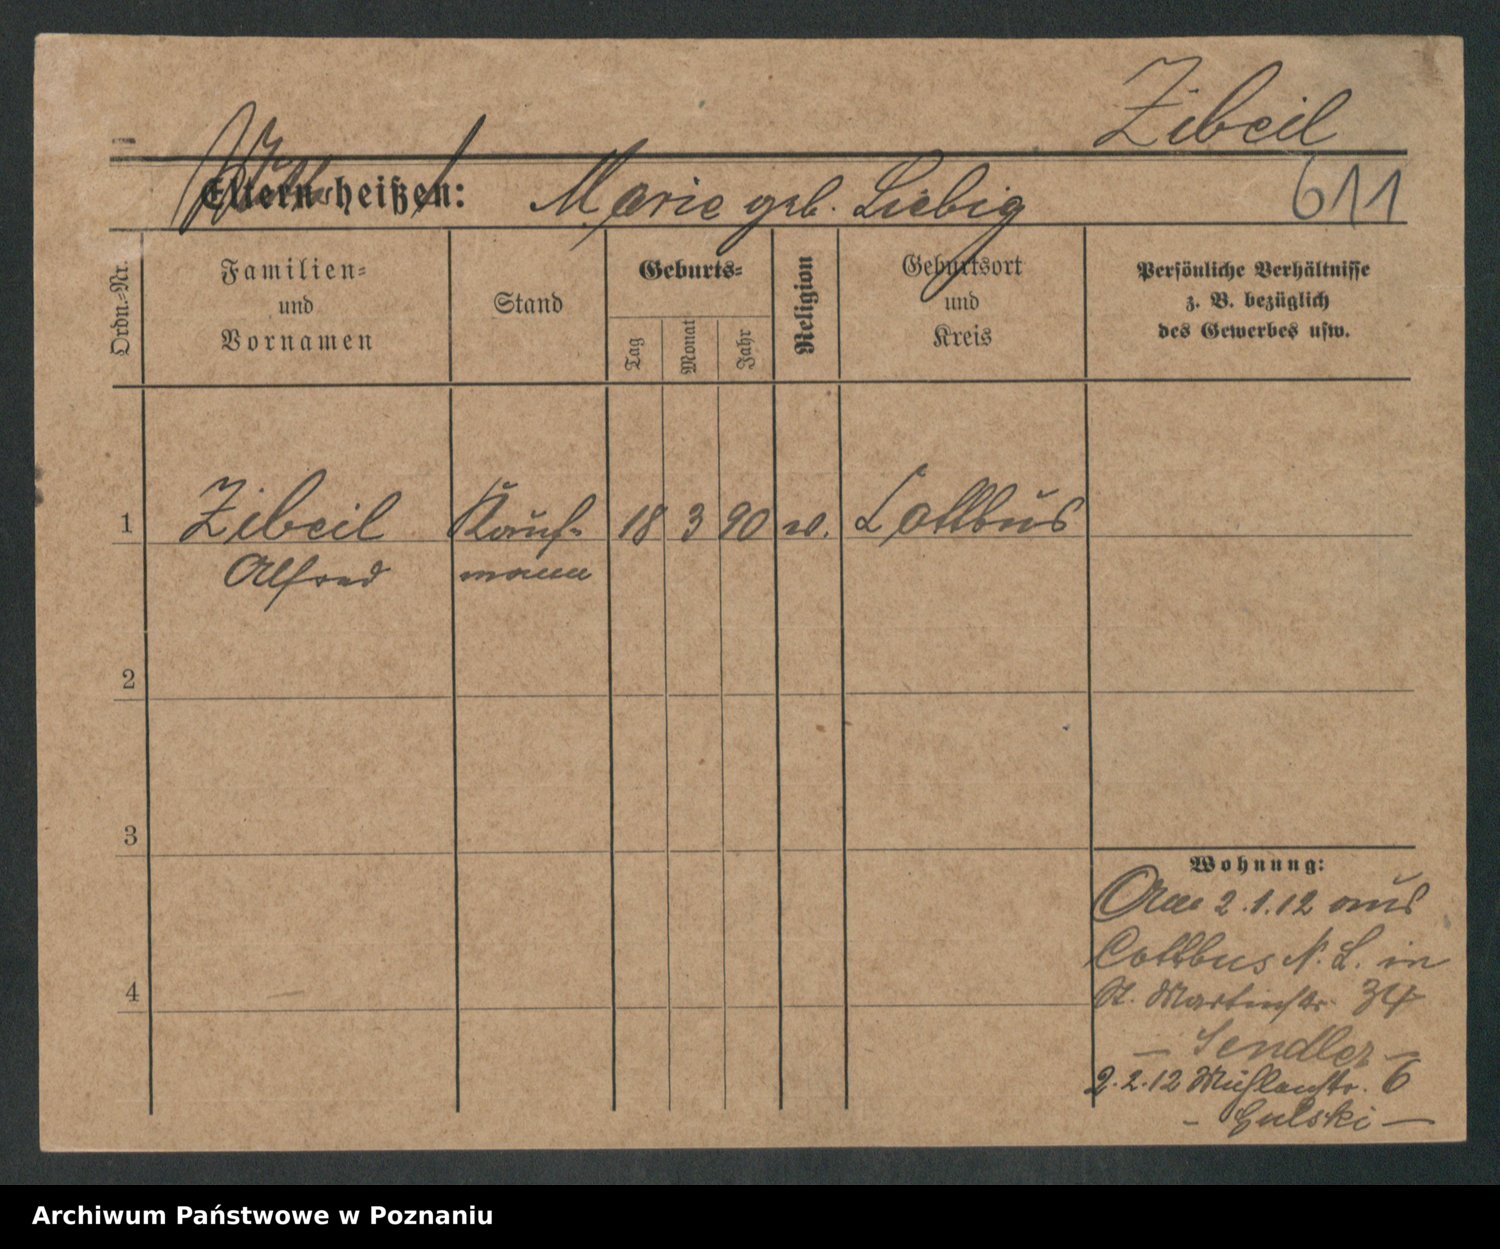 Zibeil
Eltern heißen: Marie geb. Liebig 611
Ordn.-Nr.
Familien-
und
Vornamen
Stand
Geburts-
Tag
Monat
Jahr
Religion
Geburtsort
und
Kreis
Persönliche Verhältnisse
z. B. bezüglich
des Gewerbes usw.
1 Zibeil Kauf- 18 3 90 Cottbus
Alfred mann
2
3
4
Wohnung:
Am 2.1.12 aus
Cottbus N. L. in
St. Martinstr. 34
– Sendler –
2.2.12 Mühlenstr. 6
– Gulski –
Archiwum Państwowe w Poznaniu